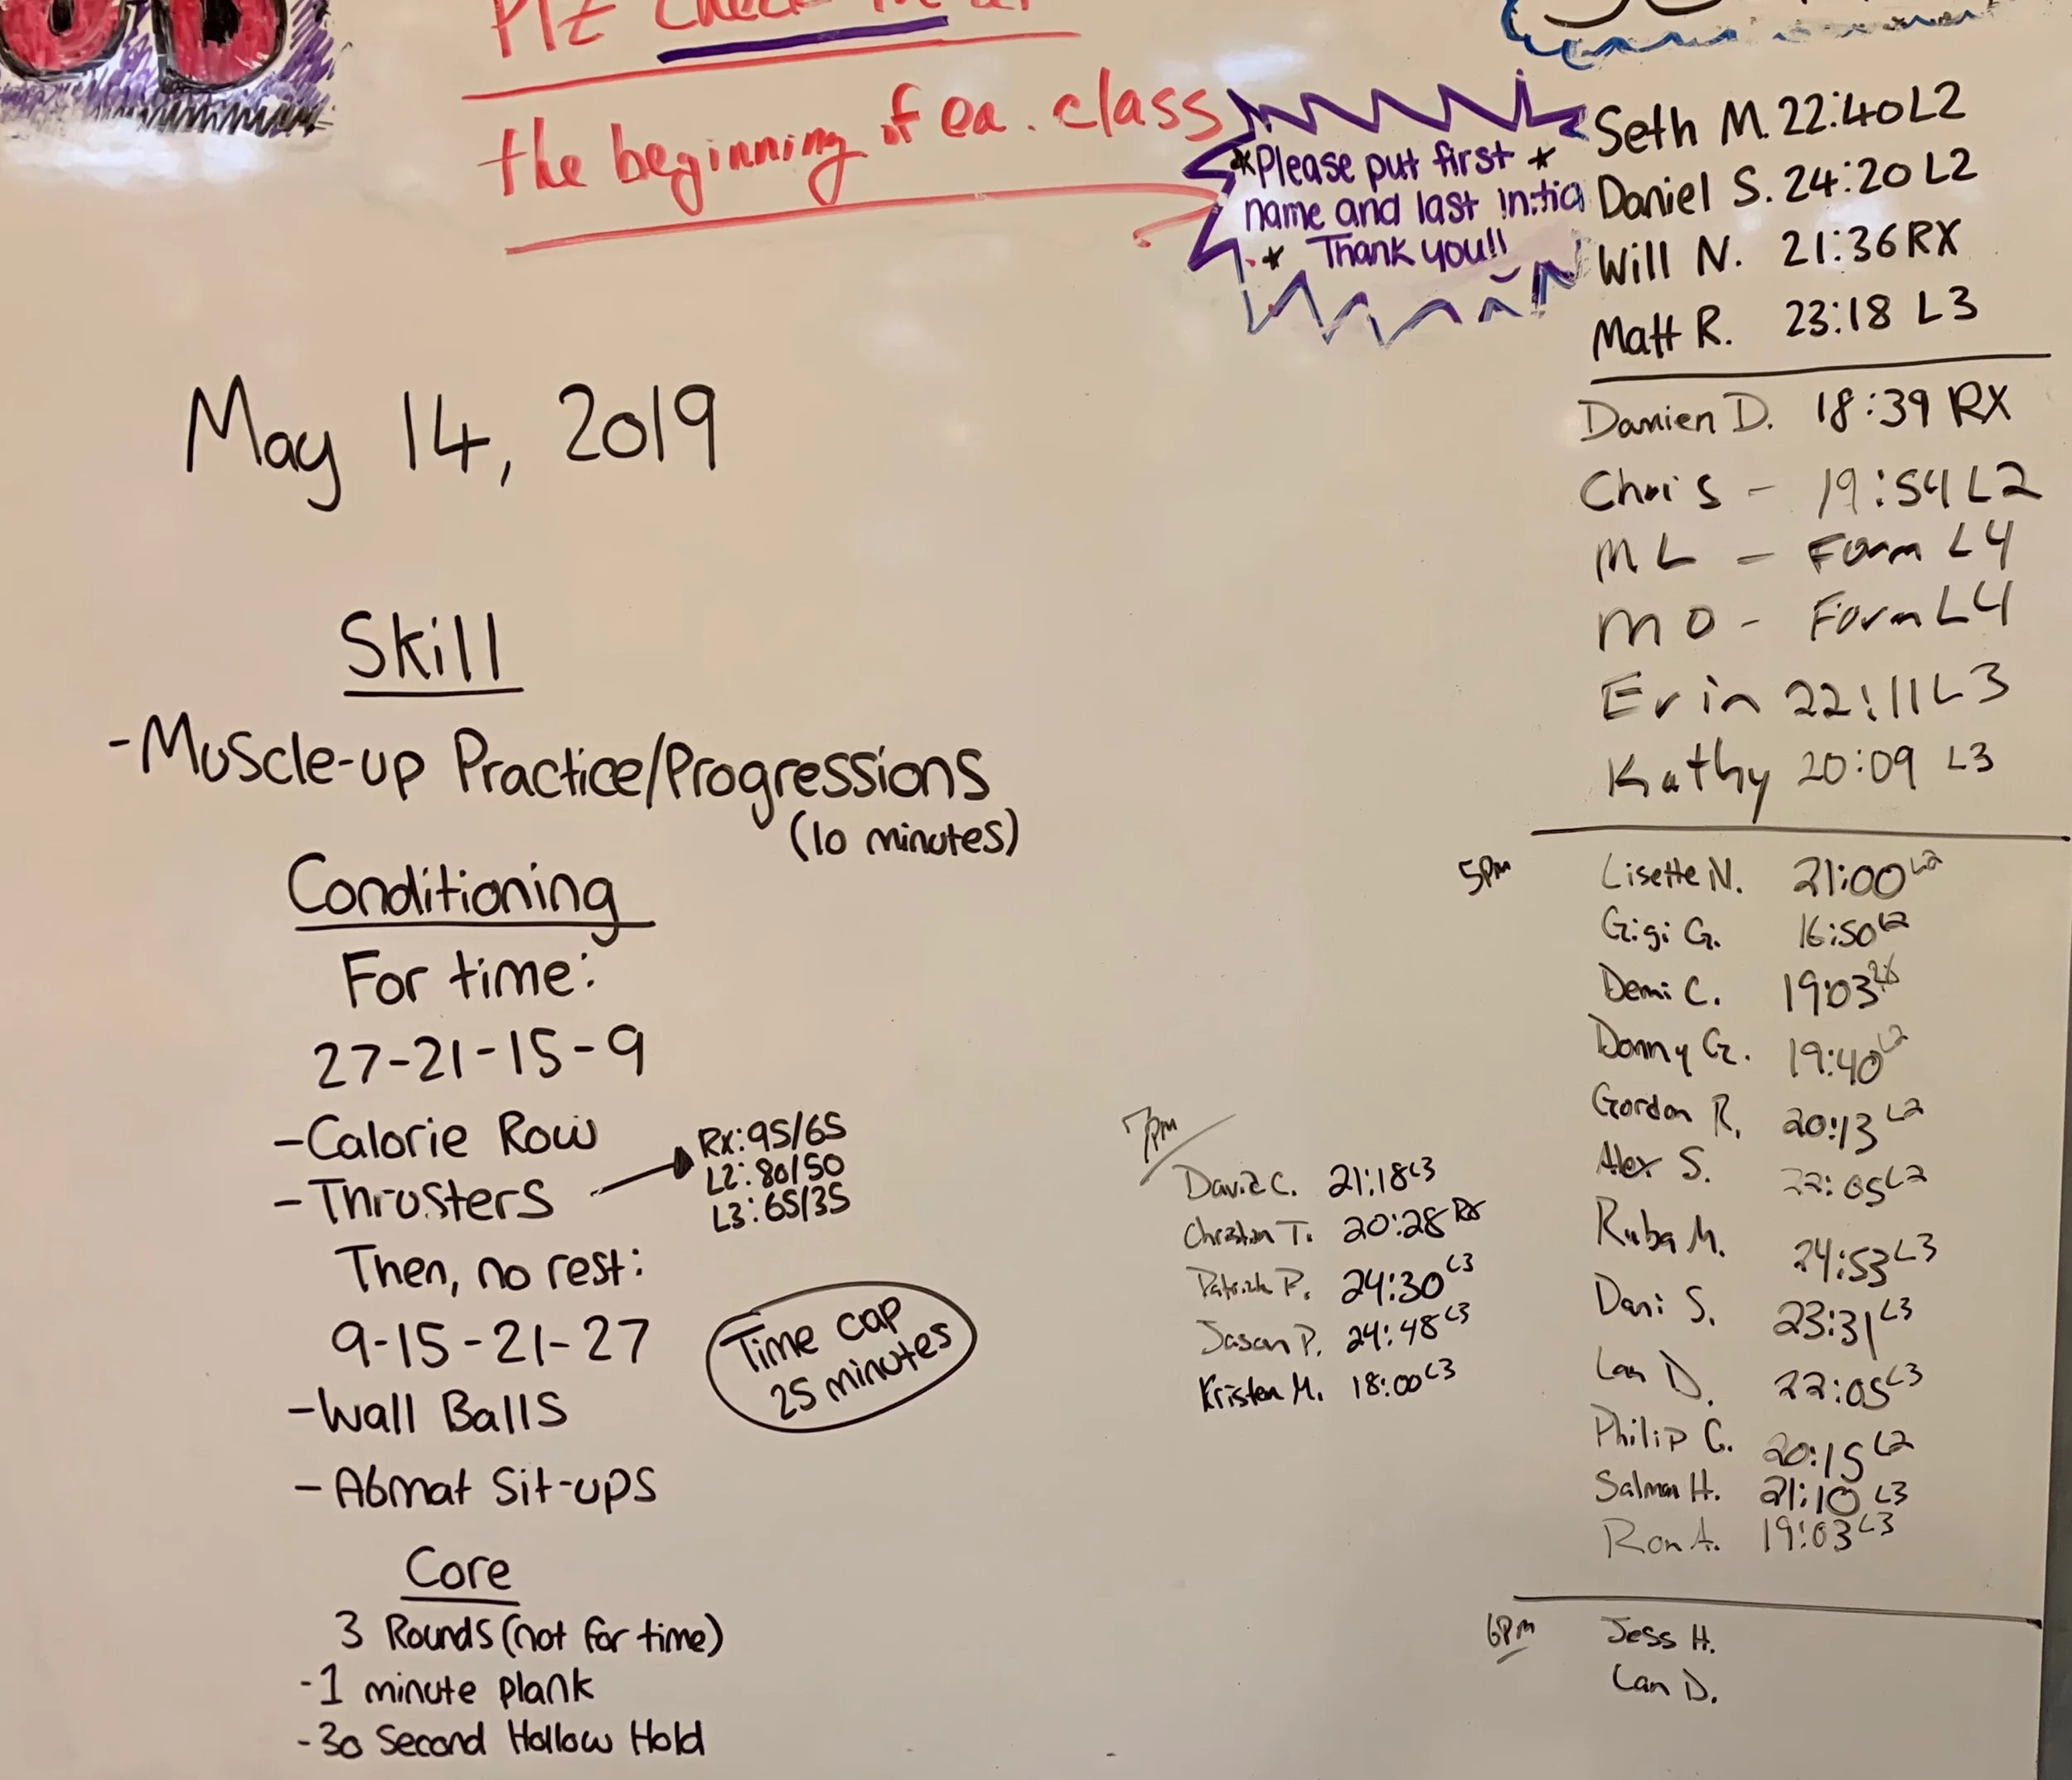 Plz check in at
the beginning of ea. class
*Please put first *
name and last initia
* Thank you!!
May 14, 2019
Skill
-Muscle-up Practice/Progressions
(10 minutes)
Conditioning
For time:
27-21-15-9
-Calorie Row
-Thrusters
Rx: 95/65
L2: 80/50
L3: 65/35
Then, no rest:
9-15-21-27
-Wall Balls
-Abmat Sit-ups
Time cap
25 minutes
Core
3 Rounds (not for time)
-1 minute plank
-30 Second Hollow Hold
7pm
David C. 21:18 L3
Christian T. 20:28 Rx
Patrick P. 24:30 L3
Jason P. 24:48 L3
Kristen M. 18:00 L3
Seth M. 22:40 L2
Daniel S. 24:20 L2
Will N. 21:36 RX
Matt R. 23:18 L3
Damien D. 18:39 RX
Chris - 19:54 L2
ML - Form L4
MO - Form L4
Erin 22:11 L3
Kathy 20:09 L3
5pm
Lisette N. 21:00 L2
Gigi G. 16:50 L2
Demi C. 19:03
Donny G. 19:40 L2
Gordon R. 20:13 L2
Alex S. 22:05 L2
Ruba M. 24:53 L3
Dani S. 23:31 L3
D. 22:05 L3
Philip G. 20:15 L2
Salman H. 21:10 L3
Ron A. 19:03 L3
6pm
Jess H.
D.